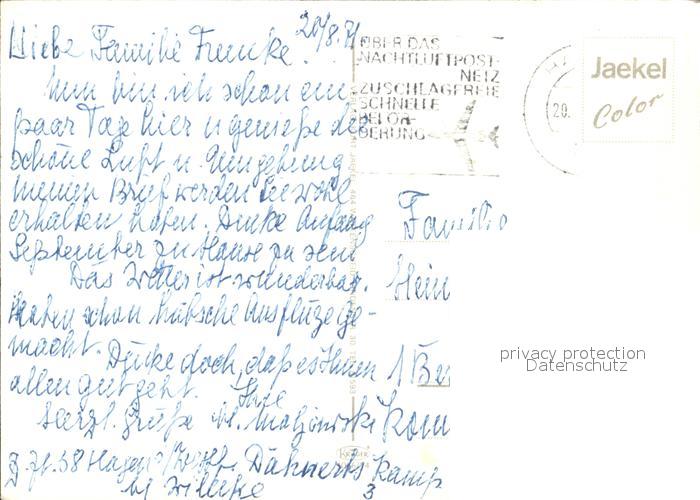 20/8.71
Liebe Familie Funke!
Nun bin ich schon ein
paar Tage hier u genieße die
schöne Luft u. Umgebung
meinen Brief werden Sie wohl
erhalten haben. Denke Anfang
September zu Hause zu sein
Das Wetter ist wunderbar.
Haben schon hübsche Ausflüge ge-
macht. Denke doch, daß es Ihnen
allen gut geht. Ihre
herzl. Grüße
58 Hagen
bei Willeke
3
ÜBER DAS
NACHTLUFTPOST-
NETZ
ZUSCHLAGFREIE
SCHNELLE
BEFÖR-
DERUNG
20.
Jaekel
Color
Familie
Hein
1 Be
kamp
KRÜGER
privacy protection
Datenschutz